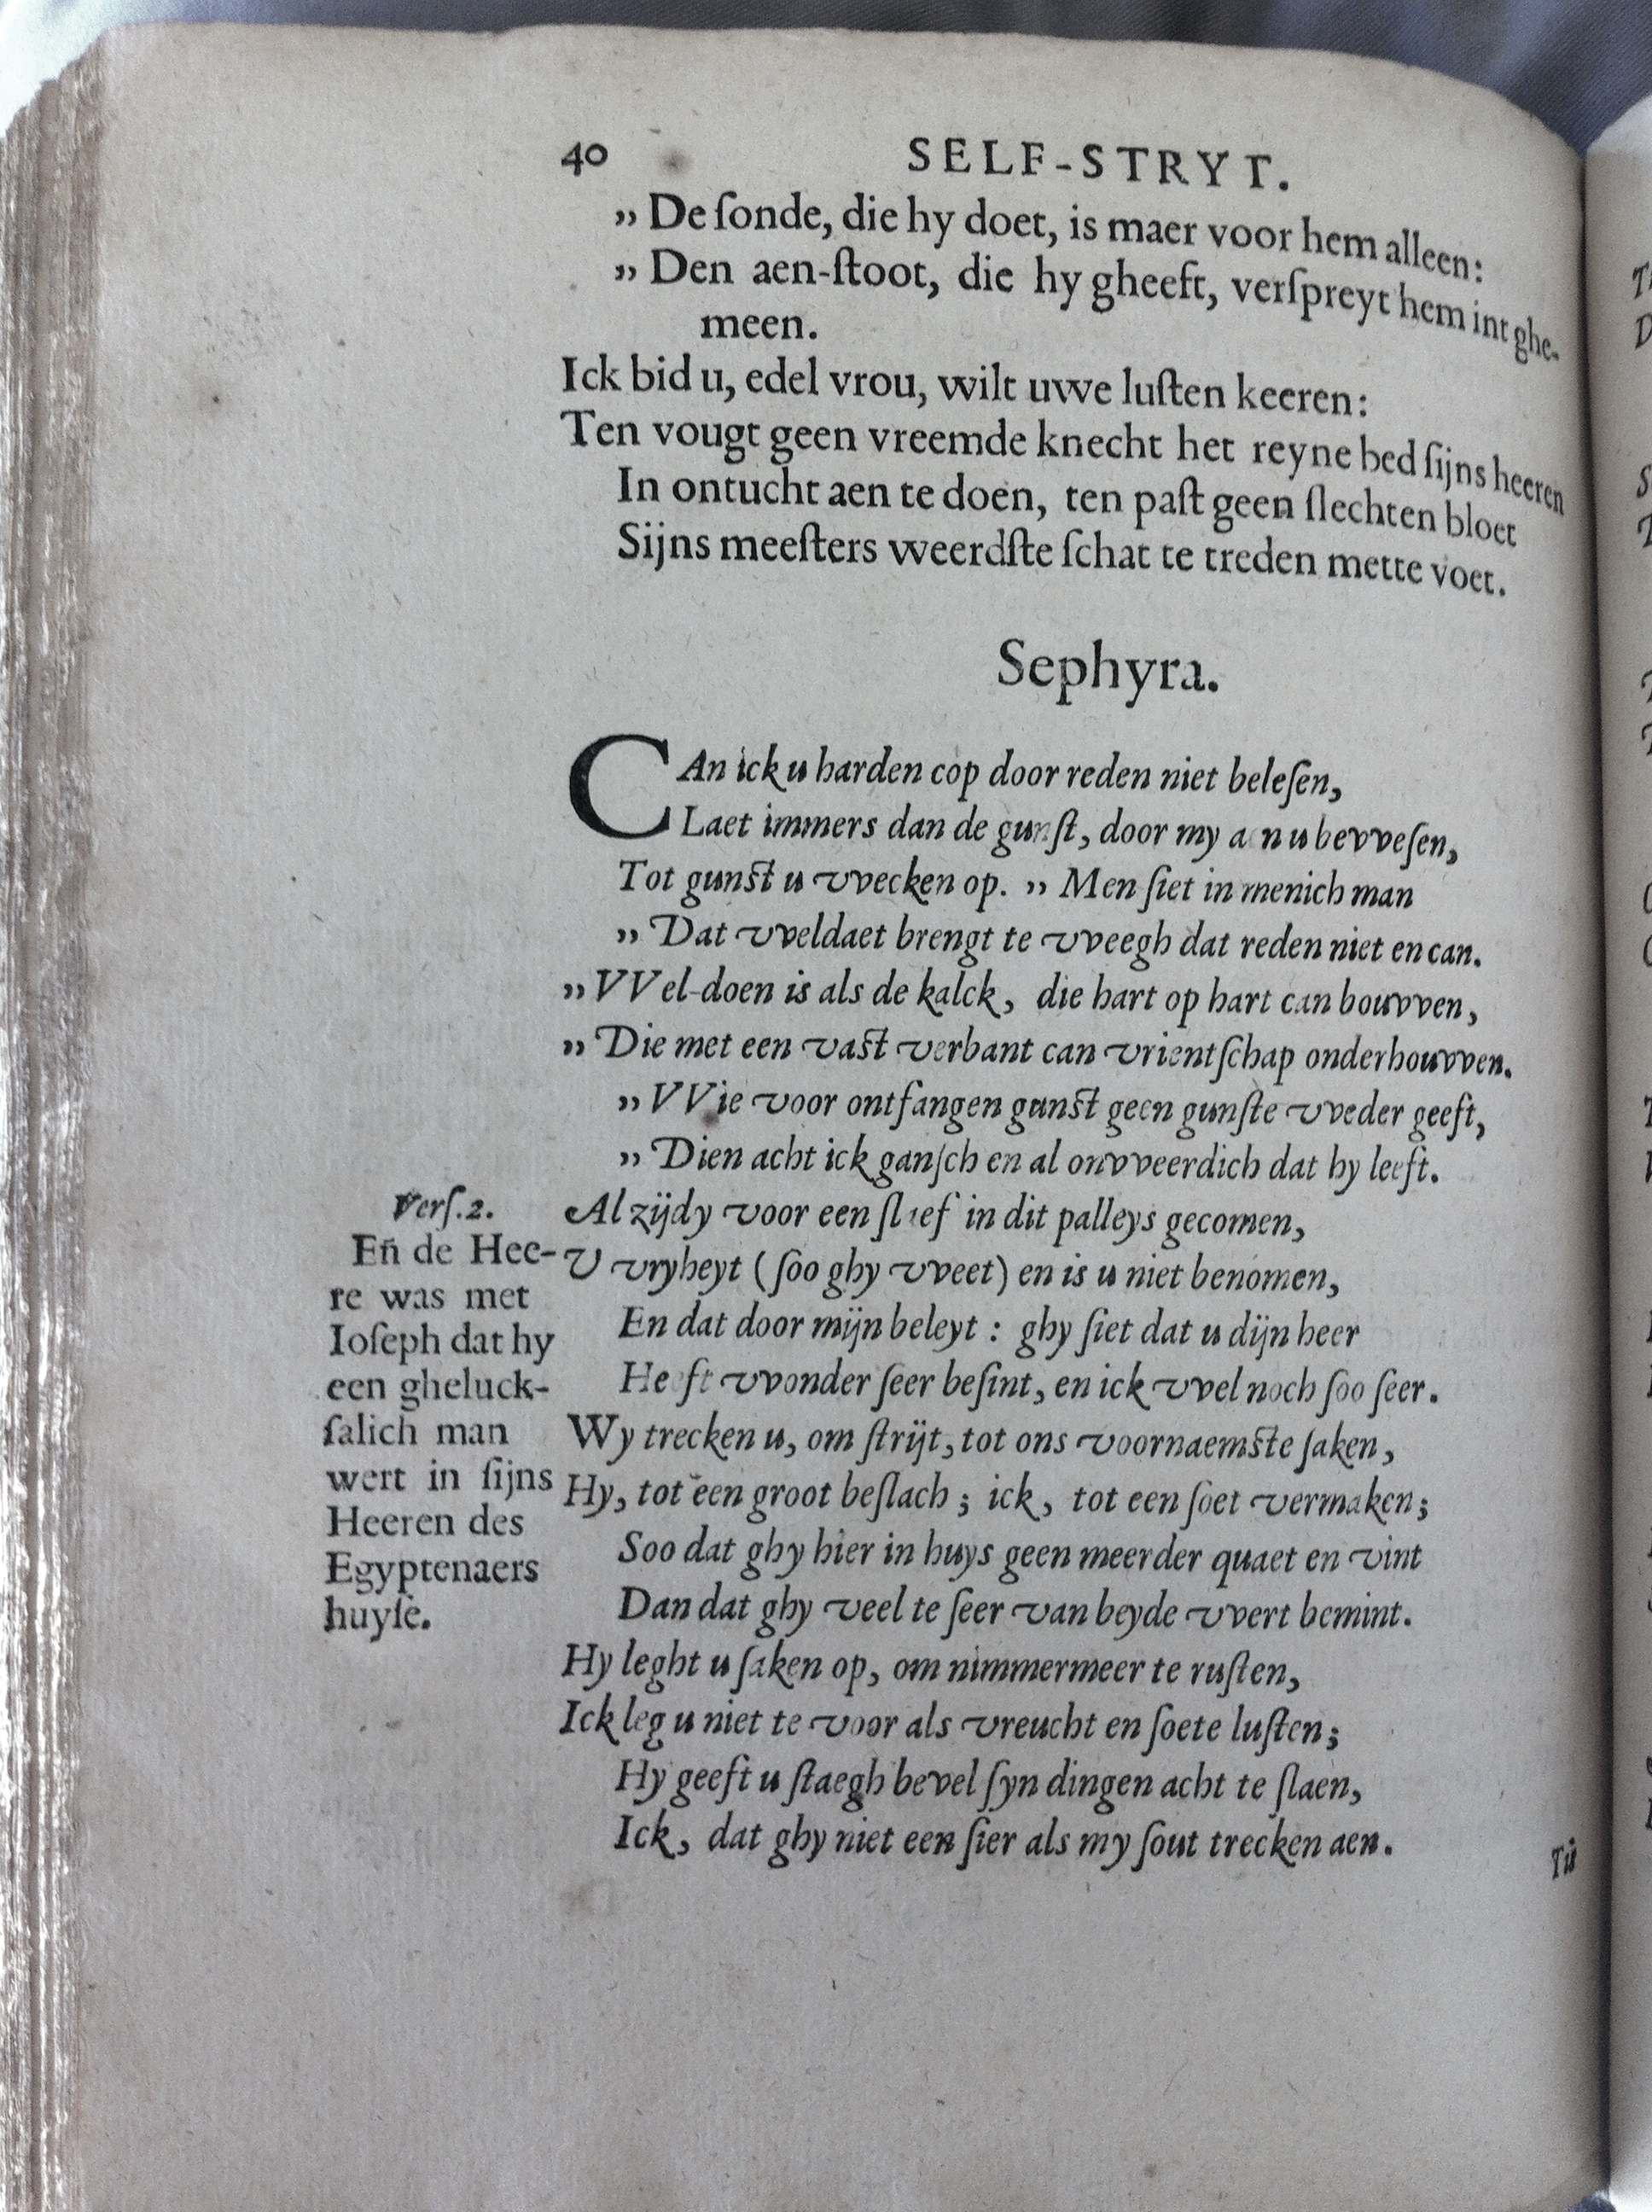 40 SELF-STRYT.
„ De ſonde, die hy doet, is maer voor hem alleen:
„ Den aen-ſtoot, die hy gheeft, verſpreyt hem int ghe-
meen.
Ick bid u, edel vrou, wilt uwe luſten keeren:
Ten vougt geen vreemde knecht het reyne bed ſijns heeren
In ontucht aen te doen, ten paſt geen ſlechten bloet
Sijns meeſters weerdſte ſchat te treden mette voet.
Sephyra.
CAn ick u harden cop door reden niet beleſen,
Laet immers dan de gunſt, door my aen u bevveſen,
Tot gunſt u vvecken op. „ Men ſiet in menich man
„ Dat vveldaet brengt te vveegh dat reden niet en can.
„ VVel-doen is als de kalck, die hart op hart can bouvven,
„ Die met een vaſt verbant can vrientſchap onderhouvven.
„ VVie voor ontfangen gunſt geen gunſte vveder geeft,
„ Dien acht ick ganſch en al onvveerdich dat hy leeft.
Al zijdy voor een ſlaef in dit palleys gecomen,
V vryheyt (ſoo ghy vveet) en is u niet benomen,
En dat door mijn beleyt : ghy ſiet dat u dijn heer
Heeft vvonder ſeer beſint, en ick vvel noch ſoo ſeer.
Wy trecken u, om ſtrijt, tot ons voornaemſte ſaken,
Hy, tot een groot beſlach ; ick, tot een ſoet vermaken;
Soo dat ghy hier in huys geen meerder quaet en vint
Dan dat ghy veel te ſeer van beyde vvert bemint.
Hy leght u ſaken op, om nimmermeer te ruſten,
Ick leg u niet te voor als vreucht en ſoete luſten;
Hy geeft u ſtaegh bevel ſyn dingen acht te ſlaen,
Ick, dat ghy niet een ſier als my ſout trecken aen.
Verſ. 2.
Eñ de Hee-
re was met
Ioſeph dat hy
een gheluck-
ſalich man
wert in ſijns
Heeren des
Egyptenaers
huyſe.